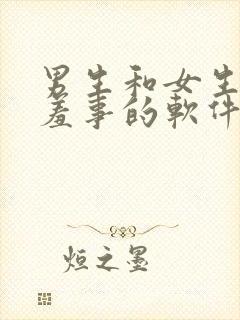 男生和女生
羞事的軟件
烜之墨